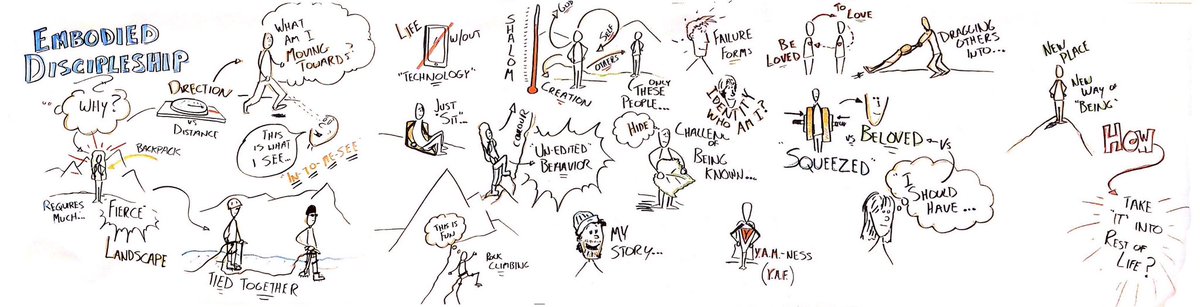 EMBODIED
DISCIPLESHIP
WHY?
BACKPACK
REQUIRES
MUCH...
"FIERCE"
LANDSCAPE
DIRECTION
VS
DISTANCE
WHAT
AM I
MOVING
TOWARDS?
THIS
IS WHAT
I SEE...
"IN-TO-ME-SEE"
TIED TOGETHER
LIFE
W/OUT
"TECHNOLOGY"
JUST
"SIT"...
SHALOM
GOD
SELF
OTHERS
CREATION
ONLY
THESE
PEOPLE...
"UN-EDITED"
BEHAVIOR
THIS IS
FUN
ROCK
CLIMBING
FAILURE
FORMS
IDENTITY
WHO AM I?
HIDE
CHALLENGE
OF
BEING
KNOWN...
MY
STORY...
TO
LOVE
BE
LOVED
"SQUEEZED"
VS
BELOVED
VS
Y.A.M.-NESS
(Y.A.F.)
DRAGGING
OTHERS
INTO...
I
SHOULD
HAVE...
NEW
PLACE
NEW
WAY OF
"BEING"
HOW
TAKE
"IT" INTO
REST OF
LIFE?